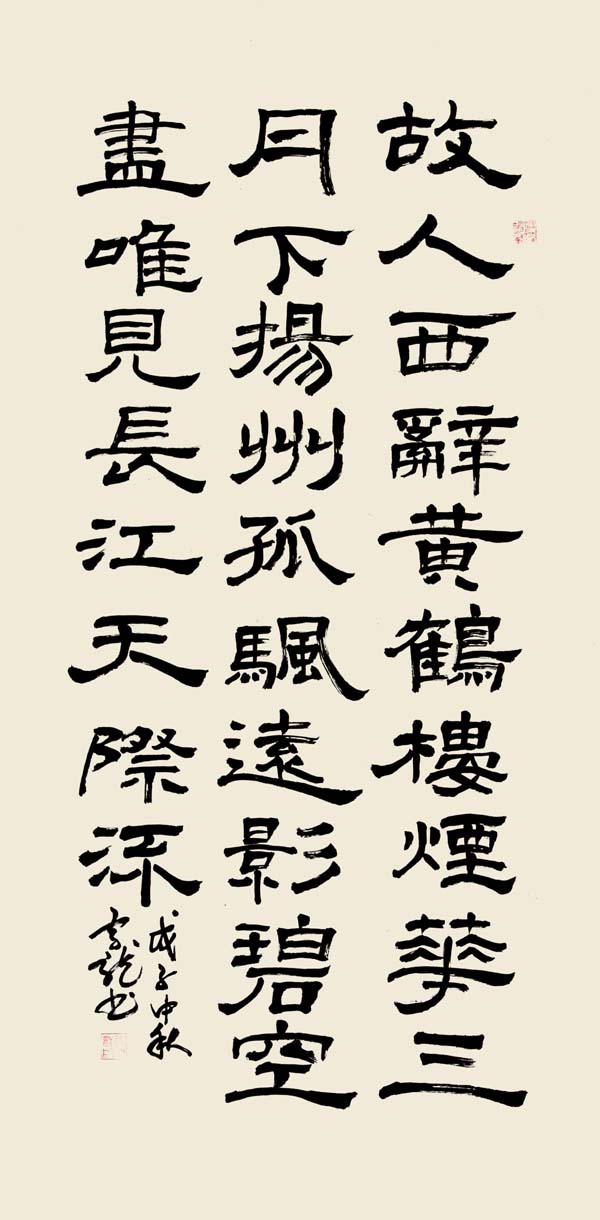 故人西辭黃鶴樓煙華三
月下揚州孤颿遠影碧空
盡唯見長江天際流
戊子中秋
龍書